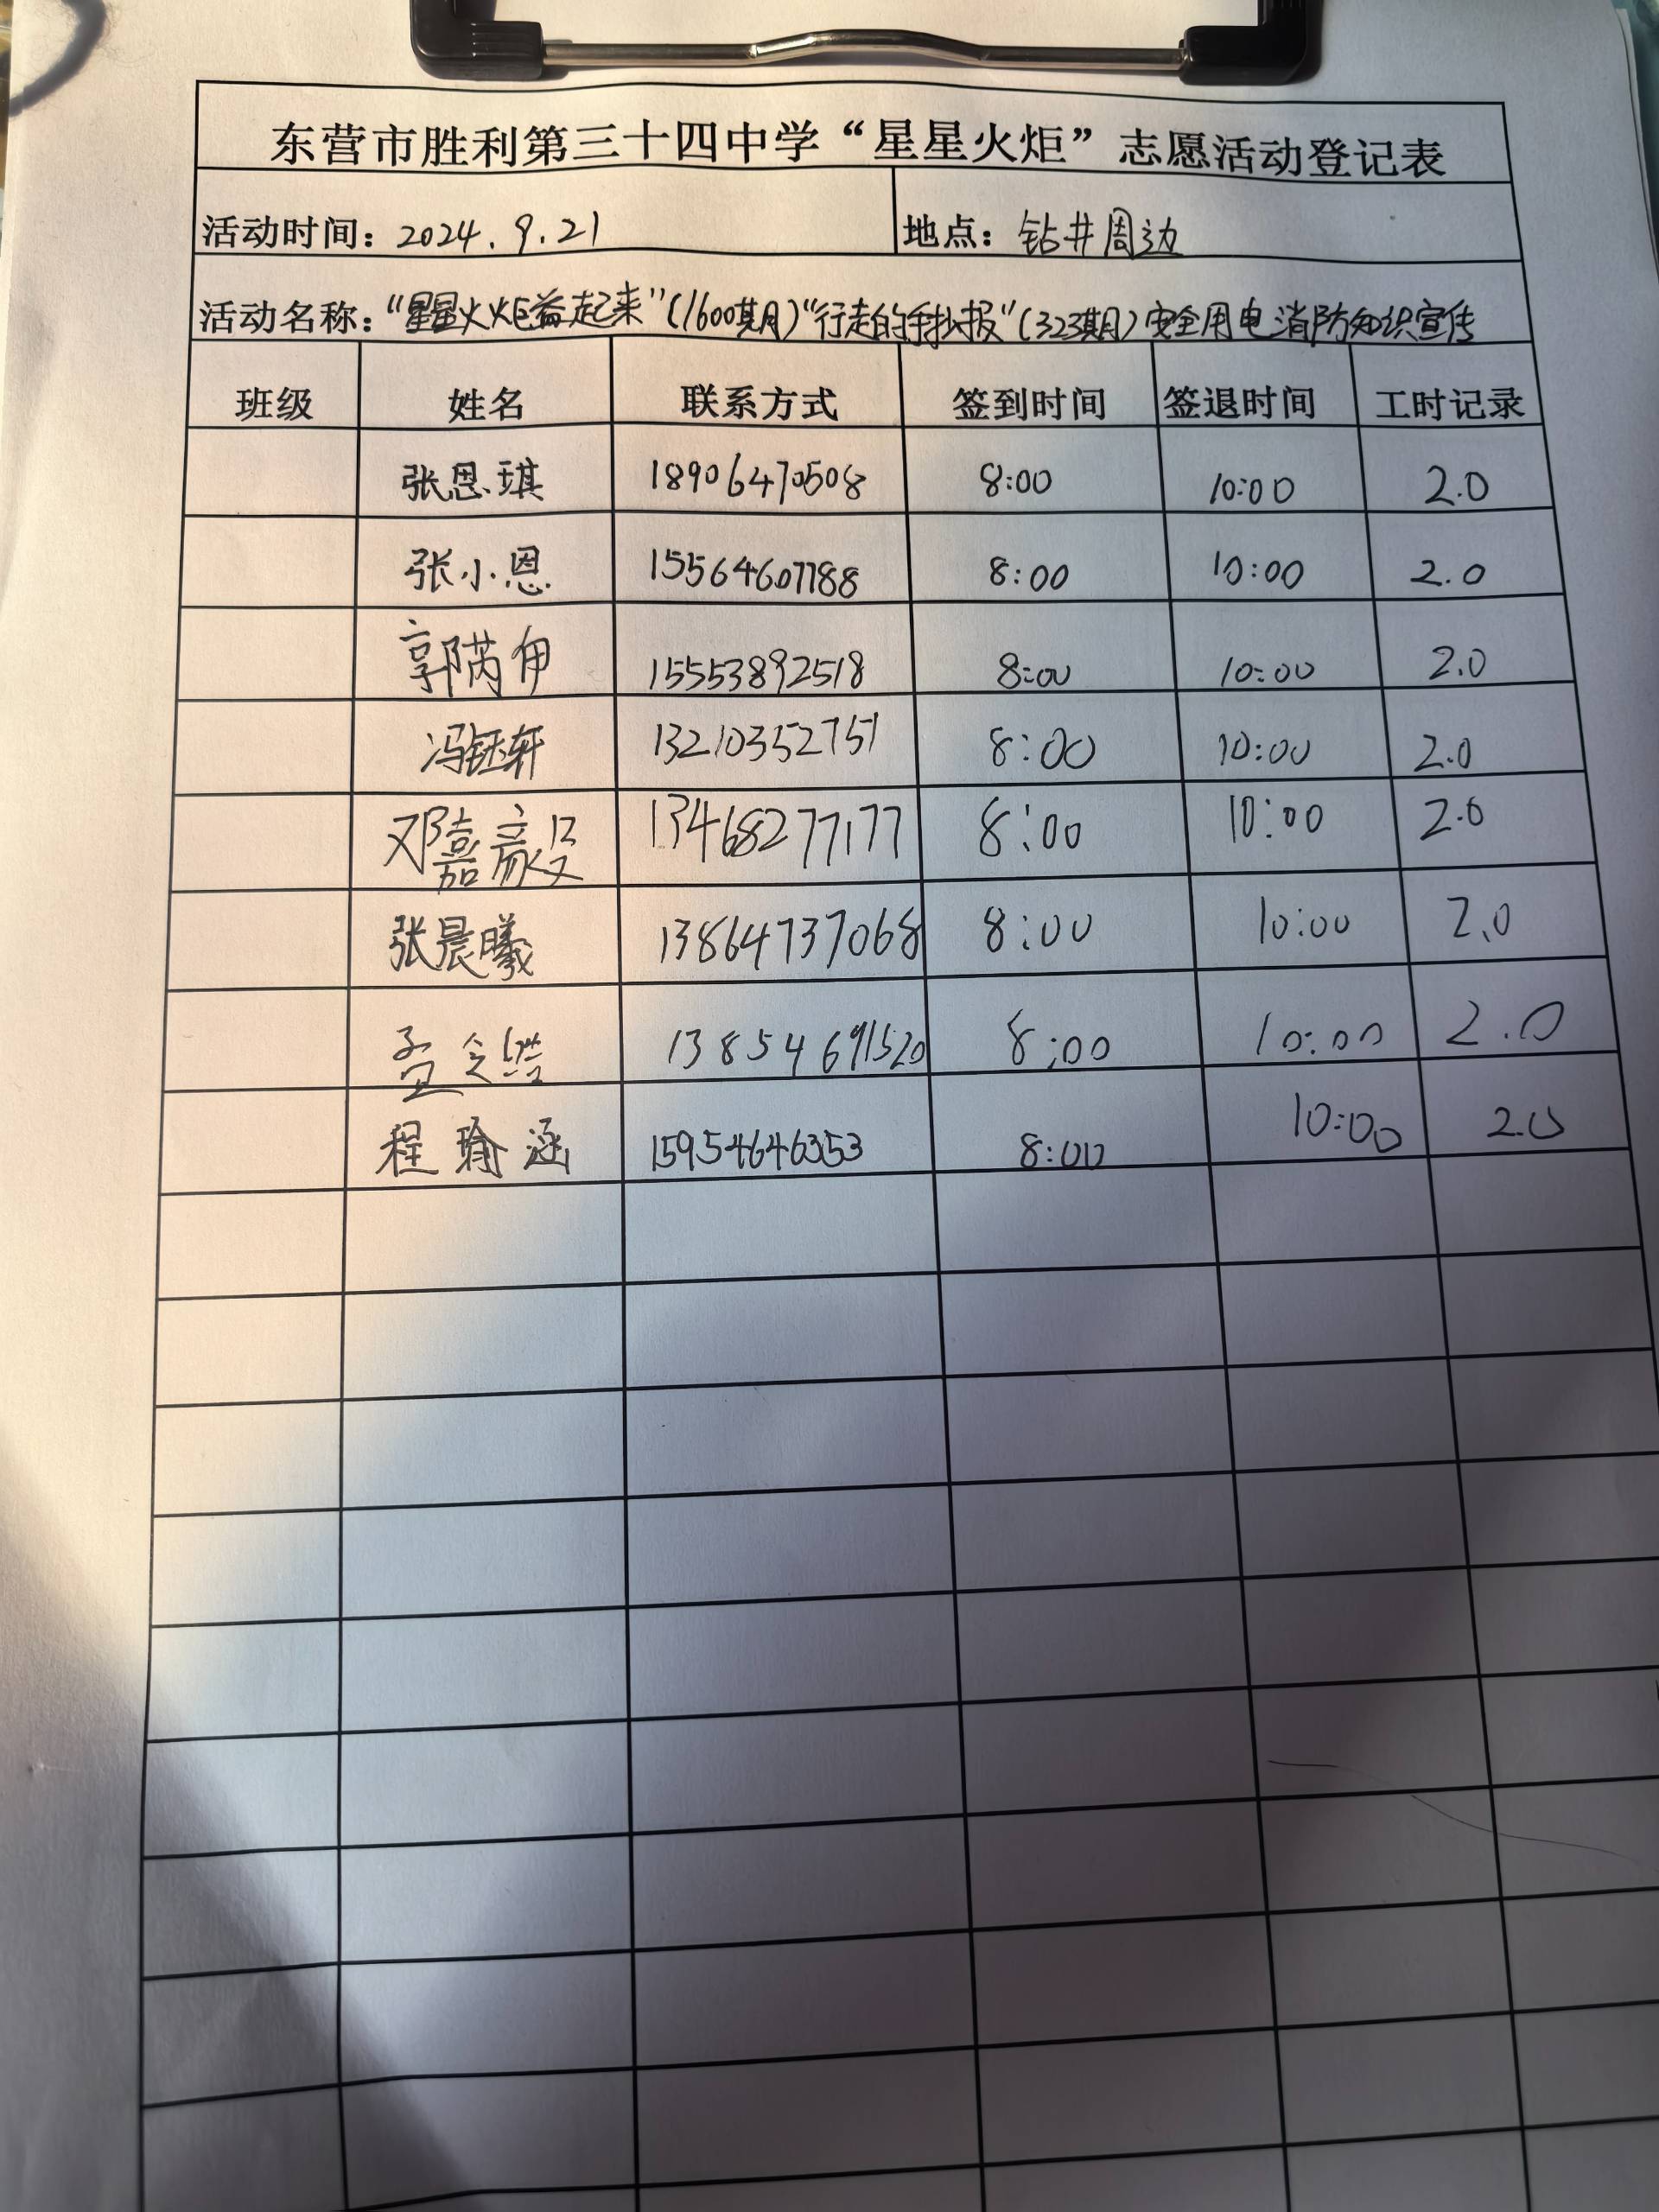 东营市胜利第三十四中学“星星火炬”志愿活动登记表
活动时间：2024.9.21 地点：钻井周边
活动名称：“星星火炬益起来”（1600期）“行走的手抄报”（323期）安全用电消防知识宣传
班级 姓名 联系方式 签到时间 签退时间 工时记录
张恩琪 18906470508 8:00 10:00 2.0
张小恩 15564607788 8:00 10:00 2.0
郭芮伊 15553892518 8:00 10:00 2.0
冯钰轩 13210352751 8:00 10:00 2.0
邓嘉 13468277177 8:00 10:00 2.0
张晨曦 13864737068 8:00 10:00 2.0
孟令 13854691520 8:00 10:00 2.0
程瑜涵 15954646353 8:00 10:00 2.0